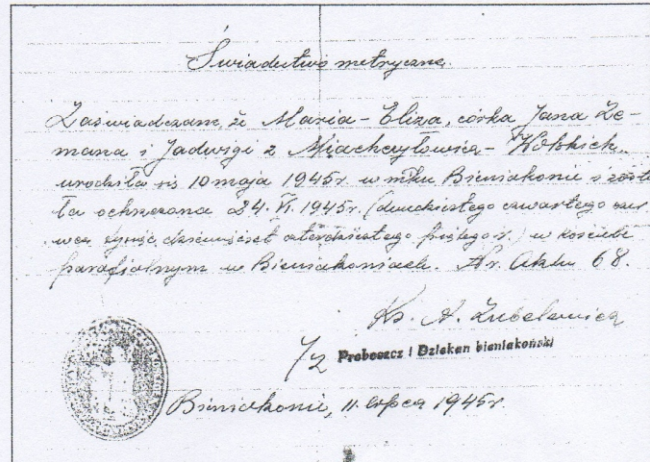 Świadectwo metryczne.
Zaświadczam, że Maria-Eliza, córka Jana Ze-
mana i Jadwigi z
urodziła się 10 maja 1945r. w mku Bieniakonie i zosta-
ła ochrzczona 24. VI. 1945r. (dwudziestego czwartego czer-
wca tysiąc dziewięćset czterdziestego piątego r.) w kościele
parafjalnym w Bieniakoniach. Nr. Aktu 68.
Ks. A.
Proboszcz i Dziekan bieniakoński
Bieniakonie, 11. lipca 1945r.